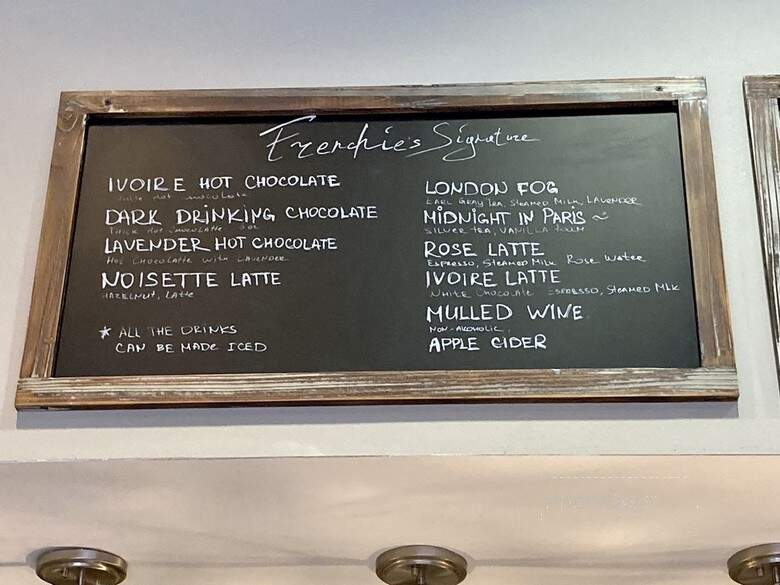 Frenchie's Signature
IVOIRE HOT CHOCOLATE
DARK DRINKING CHOCOLATE
THICK HOT CHOCOLATE 3OZ
LAVENDER HOT CHOCOLATE
HOT CHOCOLATE WITH LAVENDER
NOISETTE LATTE
HAZELNUT, LATTE
* ALL THE DRINKS
CAN BE MADE ICED
LONDON FOG
EARL GRAY TEA, STEAMED MILK, LAVENDER
MIDNIGHT IN PARIS ~
SILVER TEA, VANILLA FOAM
ROSE LATTE
ESPRESSO, STEAMED MILK ROSE WATER
IVOIRE LATTE
WHITE CHOCOLATE ESPRESSO, STEAMED MLK
MULLED WINE
NON-ALCOHOLIC
APPLE CIDER